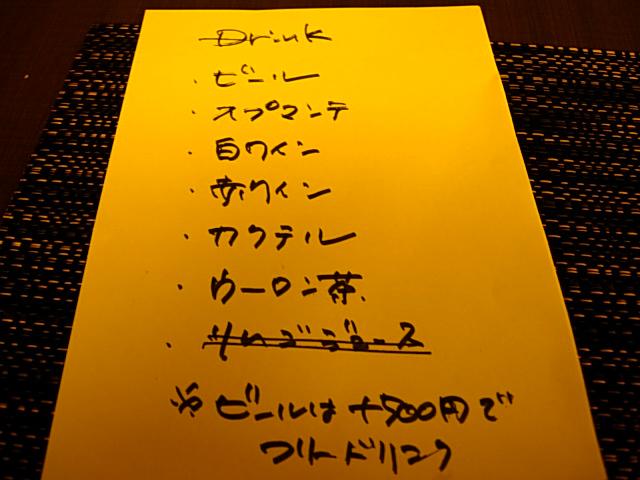 Drink
・ビール
・スプマンテ
・白ワイン
・赤ワイン
・カクテル
・ウーロン茶
・リンゴジュース
※ビールは+500円で
フリードリンク